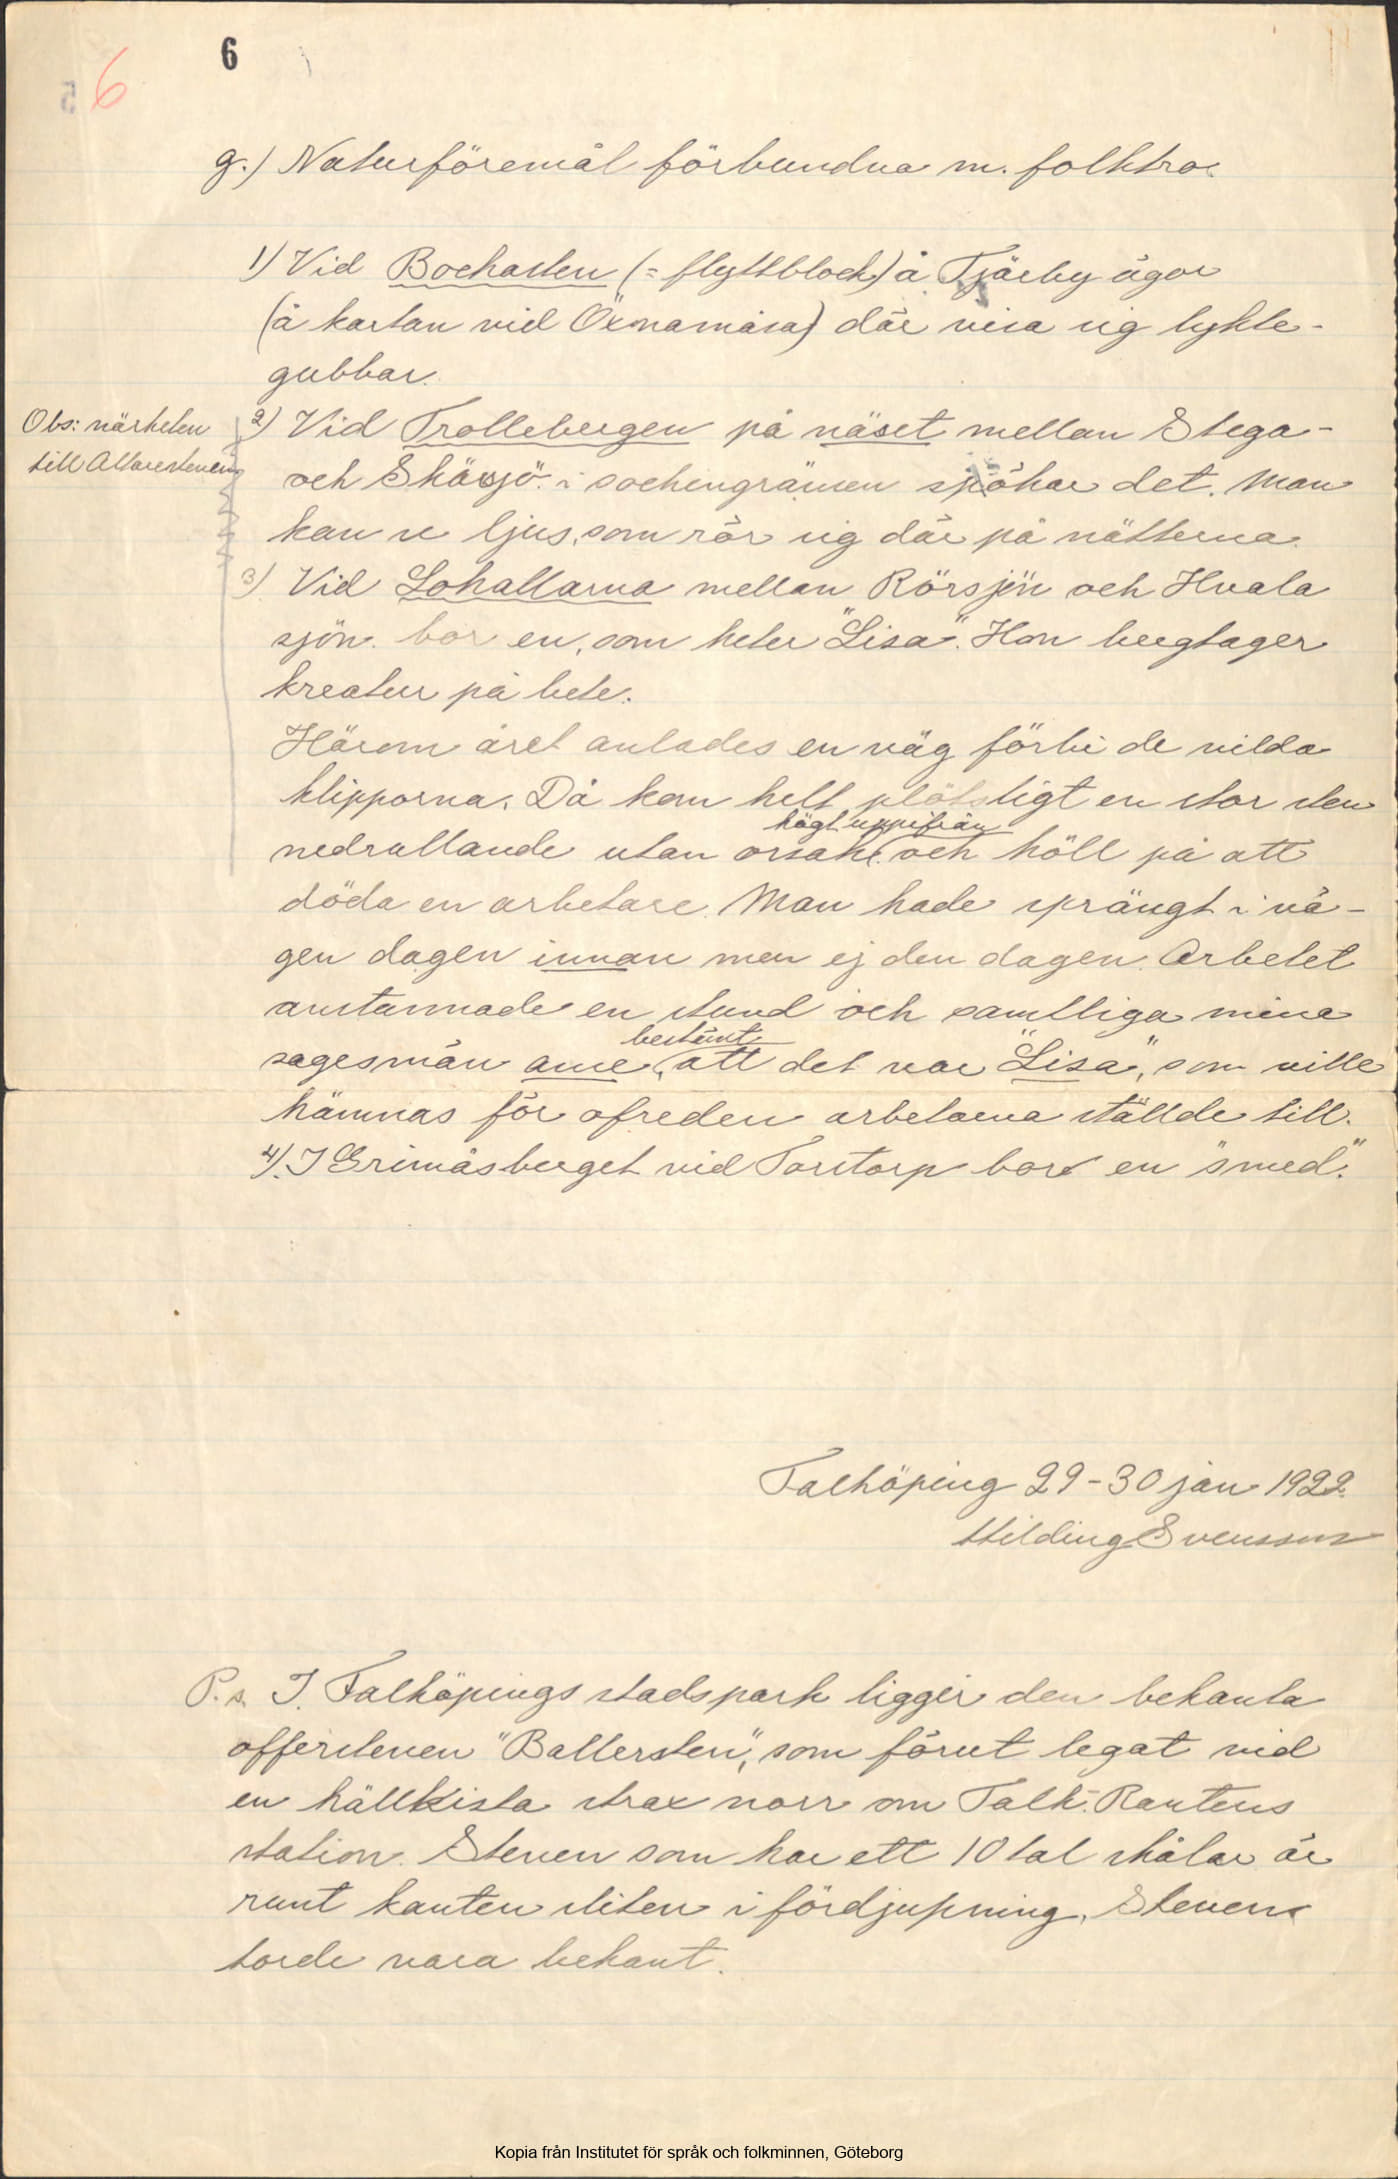 6
6
g.) Naturföremål förbundna m. folktro.
1) Vid Bockasten (= flyttblock) å Tjärby ägor
(å kartan vid Öxnamåsa) där visa sig lykte-
gubbar.
Obs: närheten
till Altarestenen
2) Vid Trollebergen på näset mellan Stega-
och Skärsjö i sockengränsen spökar det. Man
kan se ljus, som rör sig där på nätterna.
3) Vid Lohallarna mellan Rörsjön och Hvala
sjön. bor en, som heter "Lisa". Hon bergtager
kreatur på bete.
Härom året anlades en väg förbi de vilda
klipporna. Då kom helt plötsligt en stor sten
högt uppifrån
nedrullande utan orsak och höll på att
döda en arbetare. Man hade sprängt i vä-
gen dagen innan men ej den dagen. Arbetet
anstannade en stund och samtliga mina
bestämt
sagesmän anse, att det var "Lisa", som ville
hämnas för ofreden arbetarna ställde till.
4). I Grimåsberget vid Torstorp bor en "smed".
Falköping 29-30 jan 1922.
Hilding Svensson
P.s. I. Falköpings stadspark ligger den bekanta
offerstenen "Ballersten", som förut legat vid
en hällkista strax norr om Falk. Rantens
station. Stenen som har ett 10 tal skålar är
runt kanten sliten i fördjupning. Stenen
torde vara bekant.
Kopia från Institutet för språk och folkminnen, Göteborg